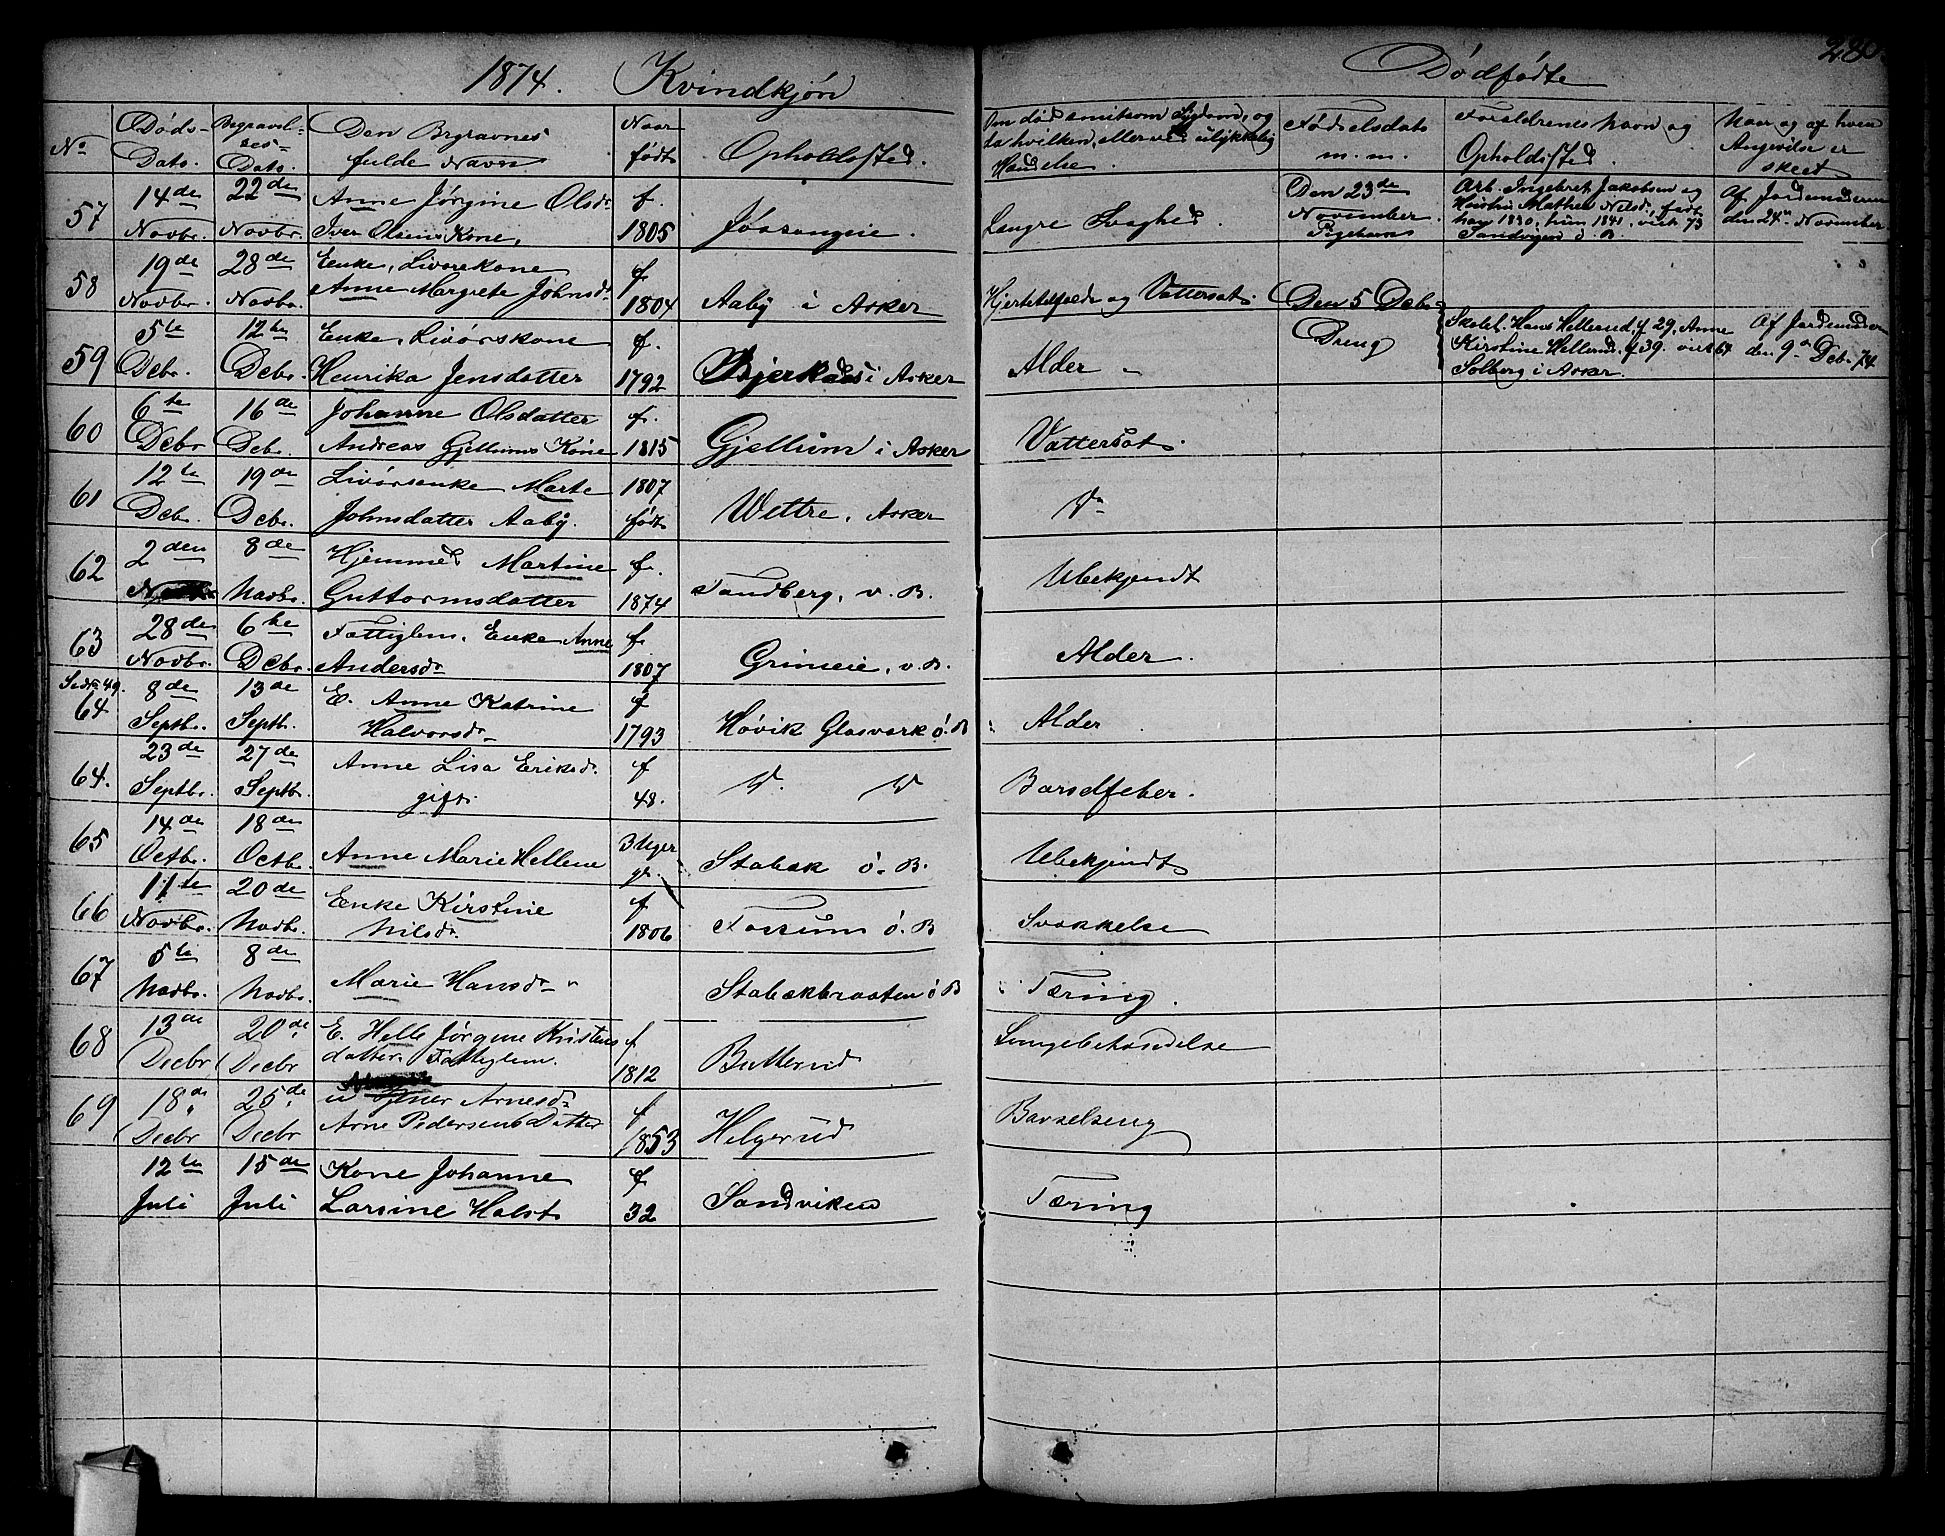 1874. Kvindkjøn
Dødfødte
280
No
Døds-Dato.
Begravelses-Dato.
Den Begravnes fulde Navn
Naar født
Opholdssted.
Om død som
og
da hvilken, eller ved ulykkelig
Hændelse.
Fødselsdato m. m.
Forældrenes Navn og Opholdssted.
Naar og af hvem Angivelse er skeet
57 14de Novbr. 22de Novbr. Anne Jørgine Olsdr. f.
Iver Olsens Kone. 1805 Langre Svaghed.
Den 23de November. Pigebarn
Arb. Ingebret Jakobsen og
Hustru Mathea Nilsd., født
han 1830, hun 1841, viet 73
Sandvigen ø. B.
Af Jordemoderen den 24de November
58 19de Novbr. 28de Novbr. Enke, Livørekone f.
Anne Margrete Johnsdr. 1804 Aaby i Asker Hjertetilfælde og Vattersot.
Den 5 Decbr. Dreng
Skolel. Hans Hellerud, f 29, Anne
Kirstine Hellerud, f 39. viet 67
Solberg i Asker.
Af Jordemoderen den 9de Decb. 74
59 5te Decbr. 12te Decbr. Enke, Livørskone f.
Henrika Jensdatter 1792 i Asker Alder
60 6te Decbr 16de Decbr. Johanne Olsdatter f.
Andreas Gjellums Kone 1815 Gjellum i Asker Vattersot.
61 12te Decbr. 19de Decbr. Livørsenke Marte 1807
Johnsdatter Aaby. født Wettre, Asker Do
62 2den 8de Novbr. Hjemmed. Martine f.
Guttormsdatter 1874 Sandberg, v. B. Ubekjendt
63 28de Novbr. 6te Decbr. Fattiglem, Enke Anne f.
Andersdr 1807 Grineie, v. B. Alder.
Sidste 49.
64 8de Septbr. 13de Septbr. E. Anne Katrine f
Halvorsdr 1793 Høvik Glasværk ø. B Alder
64. 23de Septbr. 27de Septbr. Anne Lisa Eriksdr. f
gift. 48. Do Do Barselfeber.
65 14de Octbr. 18de Octbr. Anne Marie Hellene 3 Uger gl. Stabæk ø. B. Ubekjendt
66 11te Novbr. 20de Novbr. Enke Kirstine f
Nilsdr. 1806 Fossum ø. B Svækkelse
67 5te Novbr. 8de Novbr. Marie Hansdr Stabækbraaten ø B Tæring.
68 13de Decbr 20de Decbr E. Helle Jørgine Kristens f
datter. Fattiglem. 1812 Butterud Lungebetændelse
69 18de Decbr 25de Decbr Arnesdr f
Arne Pedersens Datter 1853 Helgerud Barselseng
12te Juli 15de Juli Kone Johanne f
Larsine Holst 32 Sandviken Tæring